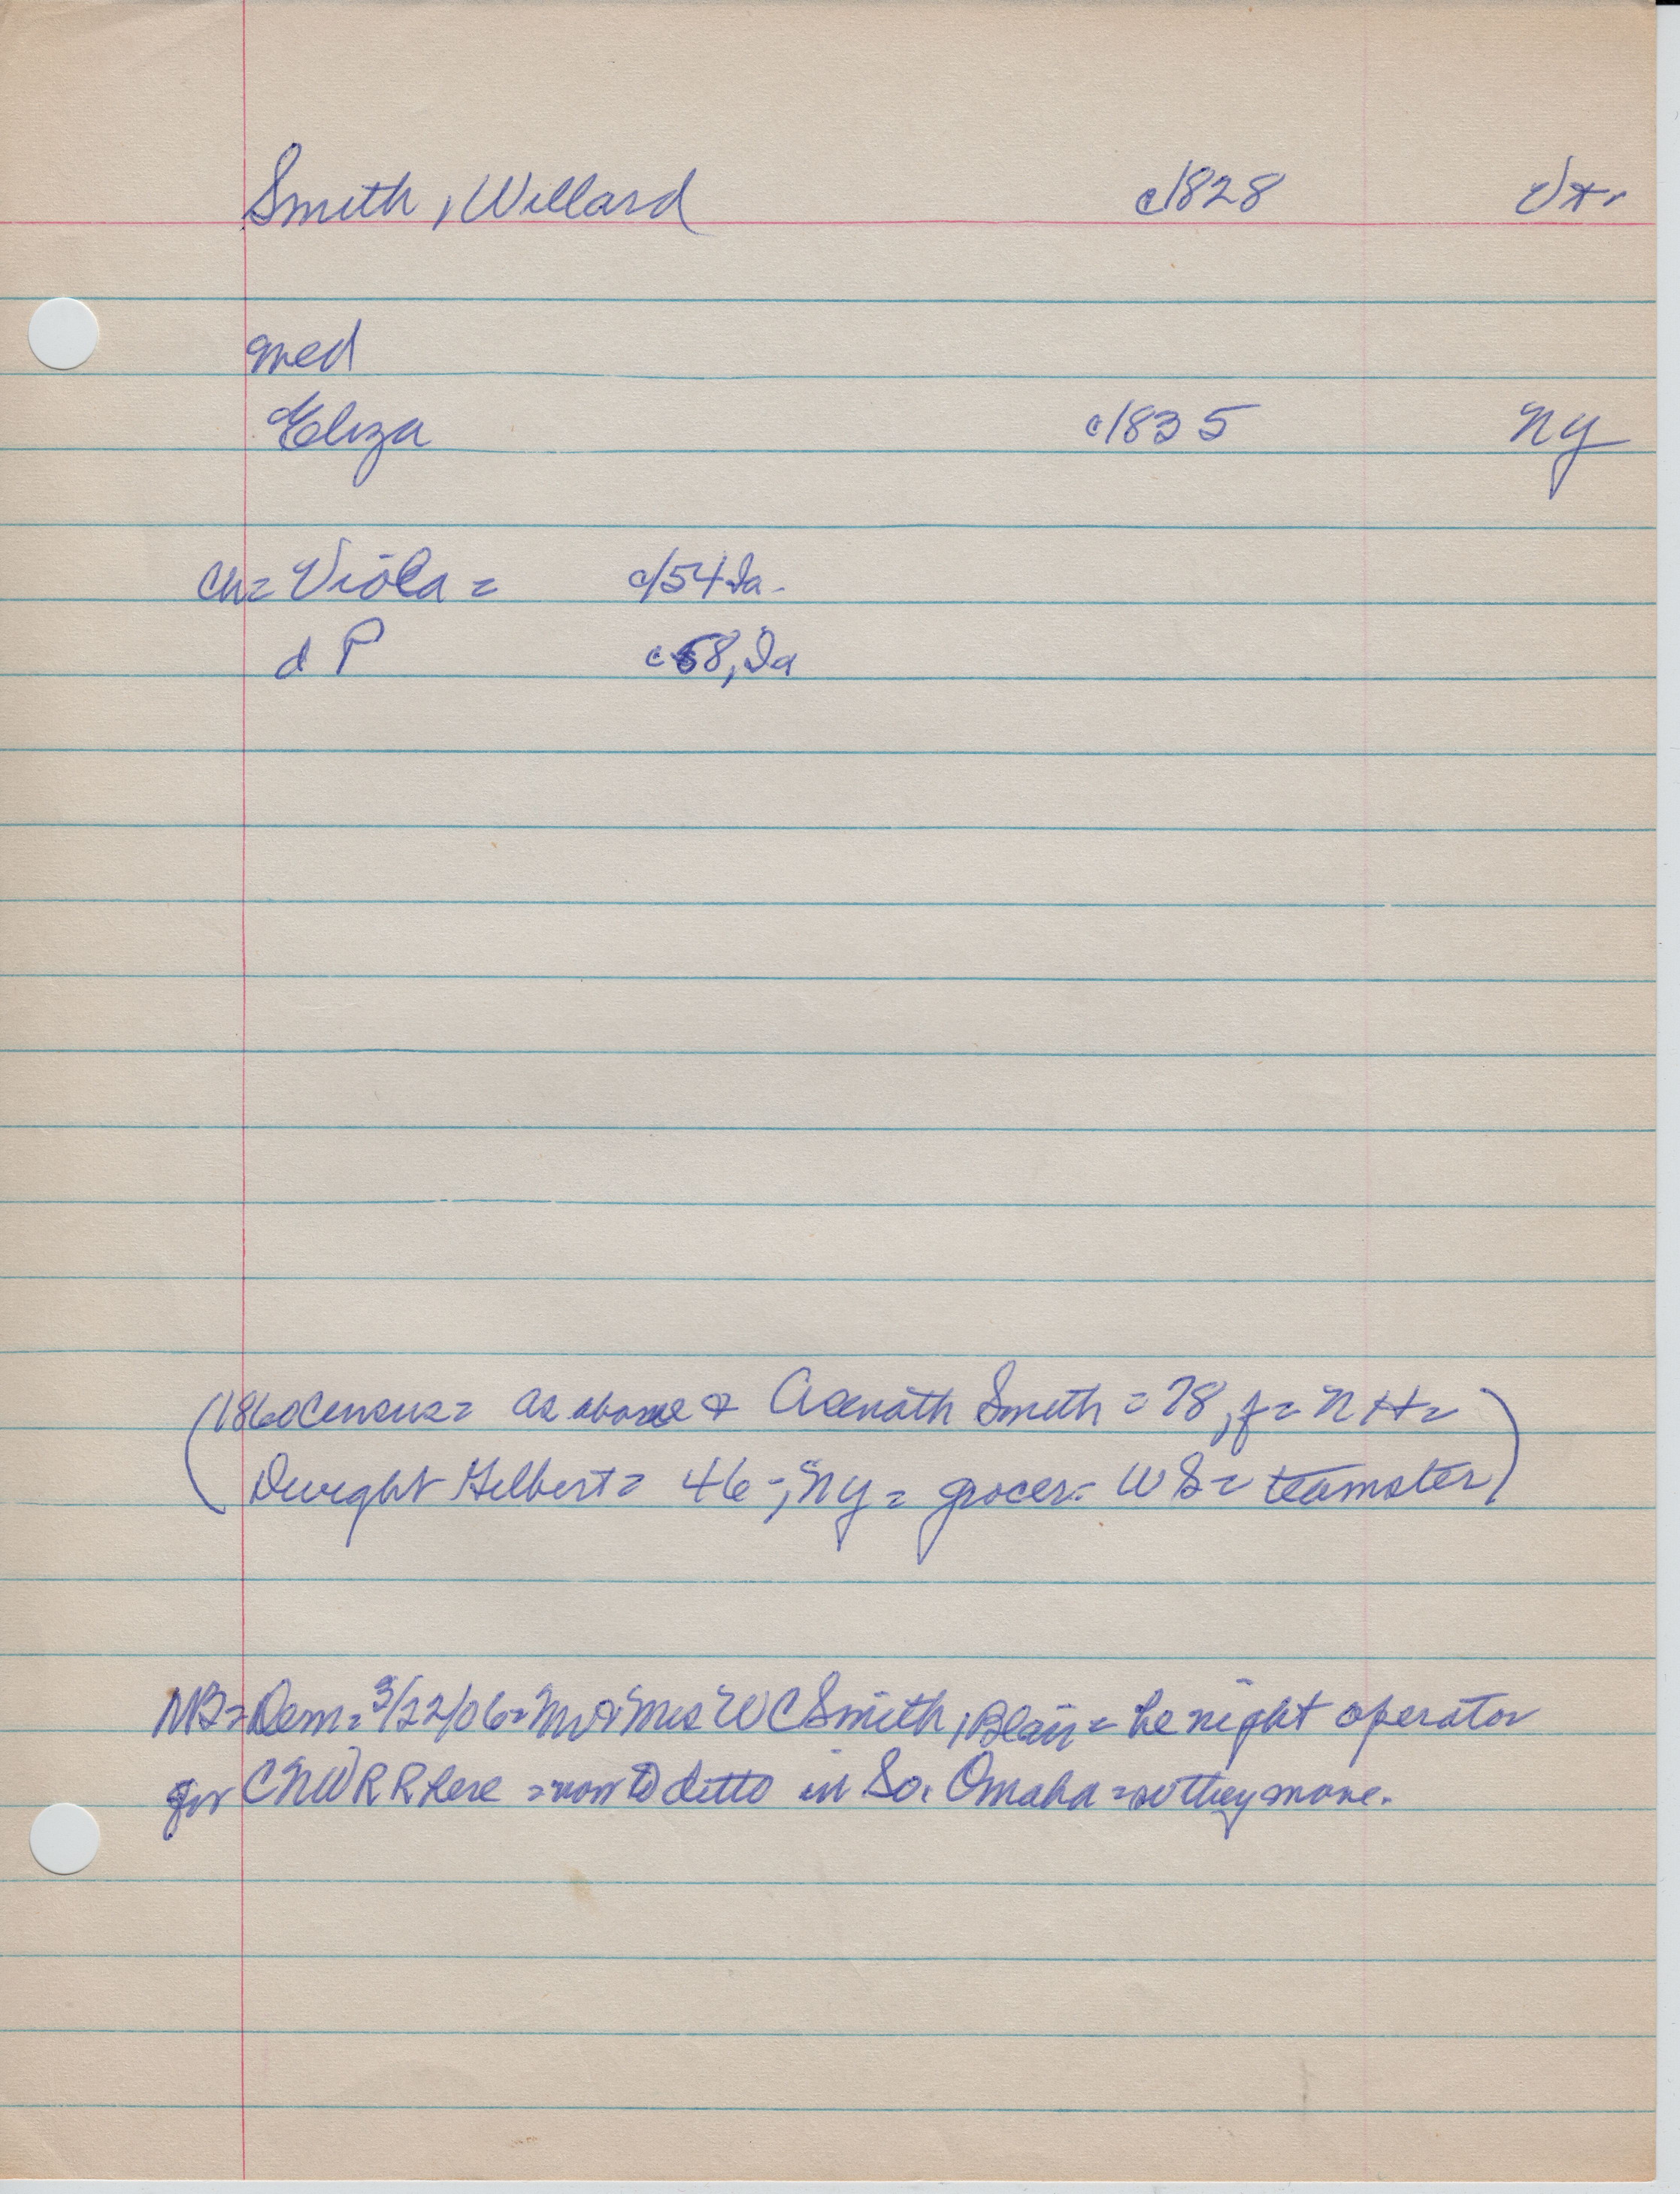 Smith, Willard c1828 Vt.
med
Eliza c1835 NY
ch= Viola = c/54 Ia.
d P c58, Ia
(1860 census= as above & Asenath Smith = 78, f= NH=
Dwight Gilbert= 46-, NY = grocer= WS= teamster)
NB= Dem= 3/22/06= Mr & Mrs W C Smith, Blair= he night operator
for CNWRR here = now to ditto in So. Omaha = so they move.